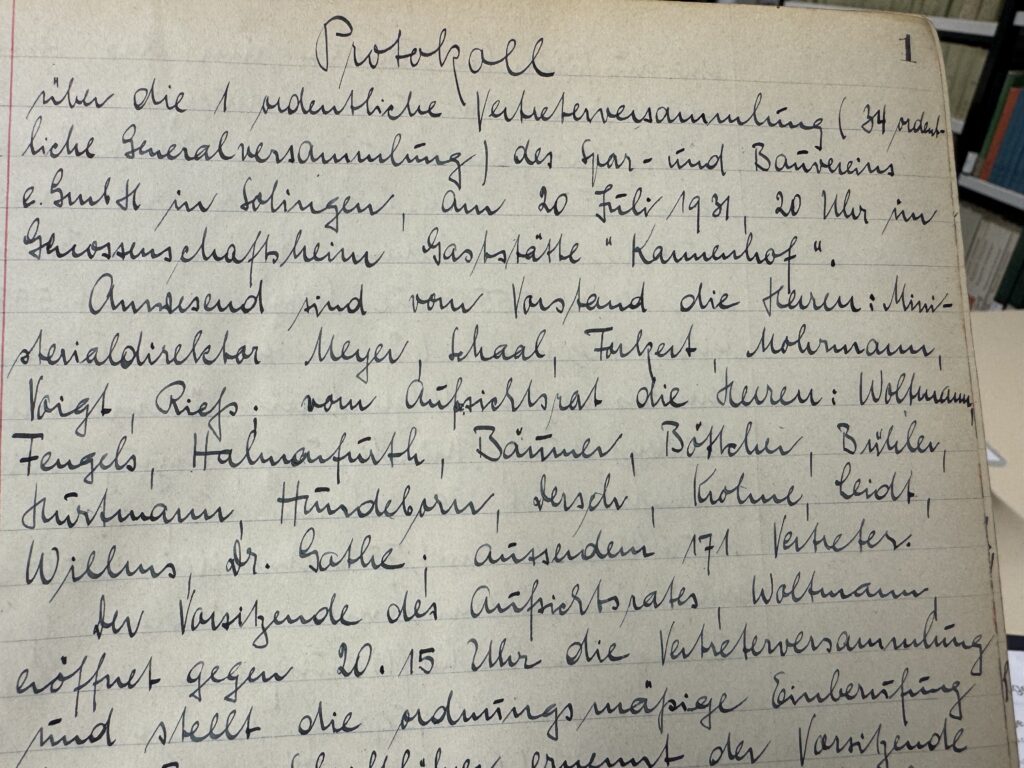 1
Protokoll
über die 1 ordentliche Vertreterversammlung (34 ordent-
liche Generalversammlung) des Spar- und Bauvereins
e.GmbH in Solingen, am 20 Juli 1931, 20 Uhr im
Genossenschaftsheim Gaststätte "Kannenhof".
Anwesend sind vom Vorstand die Herren: Mini-
sterialdirektor Meyer, Schaal, Forkert, Mohrmann,
Voigt, Rieß; vom Aufsichtsrat die Herren: Woltmann,
Fengels, Halmanfurth, Bäumer, Böttcher, Bühler,
Hurtmann, Hundeborn, Dersch, Krohne, Leidt,
Willms, Dr. Gathe; ausserdem 171 Vertreter.
Der Vorsitzende des Aufsichtsrates, Woltmann,
eröffnet gegen 20.15 Uhr die Vertreterversammlung
und stellt die ordnungsmäßige Einberufung
ernennt der Vorsitzende